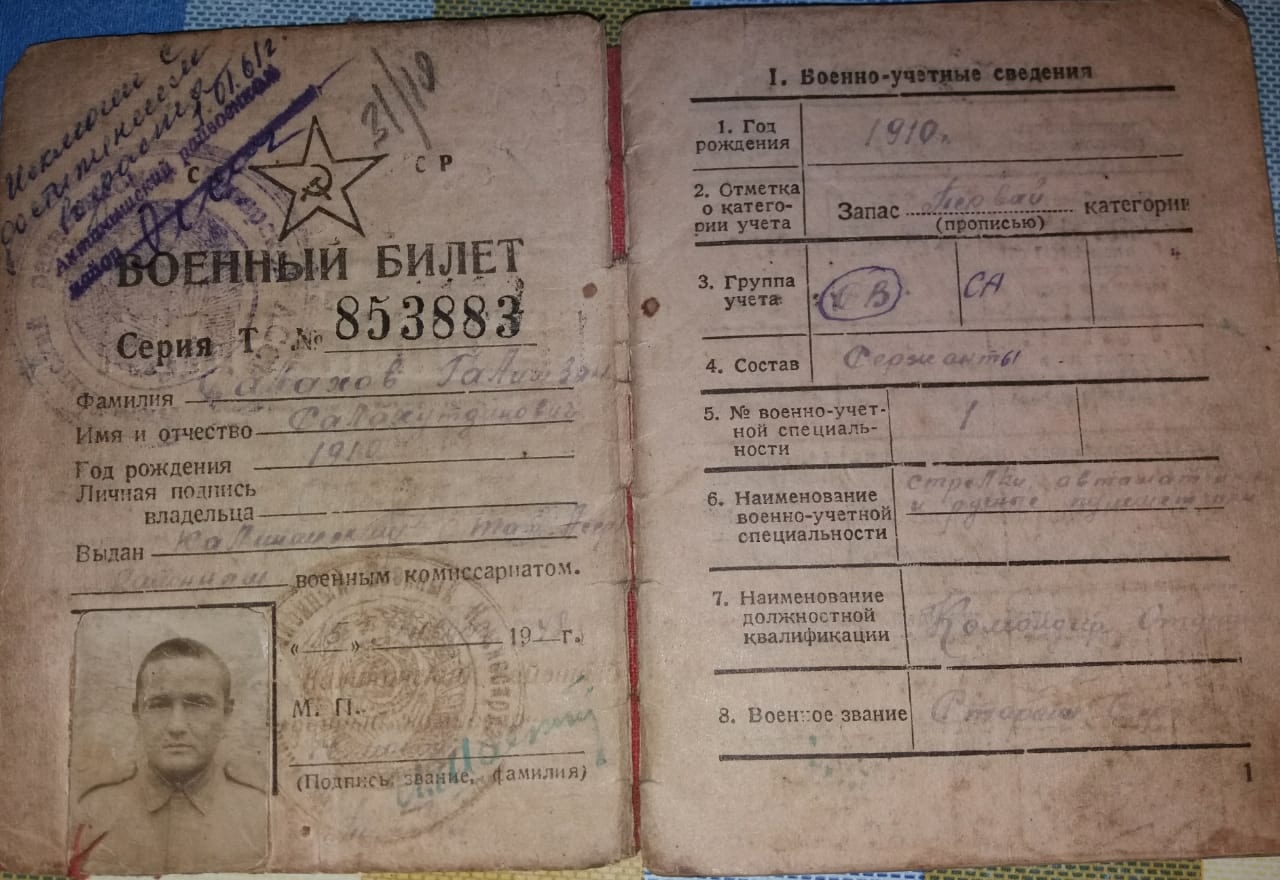 Исключен с
достижением
возраста 1.01.61г.
Актанышский райвоенком
майор
31/10
С СР
ВОЕННЫЙ БИЛЕТ
Серия Т № 853883
Фамилия
Имя и отчество Салахутдинович
Год рождения 1910
Личная подпись
владельца
Выдан Калининский
Районным военным комиссариатом.
«15» 19 г.
М. П.
(Подпись, звание, фамилия)
I. Военно-учетные сведения
1. Год
рождения
1910г.
2. Отметка
о катего-
рии учета
Запас Первай категории
(прописью)
3. Группа
учета
СА
4. Состав Сержанты
5. № военно-учет-
ной специаль-
ности
1
6. Наименование
военно-учетной
специальности
стрелки, автомат
и ручные пулемет
7. Наименование
должностной
квалификации
Командир Отд
8. Военное звание Старший
1